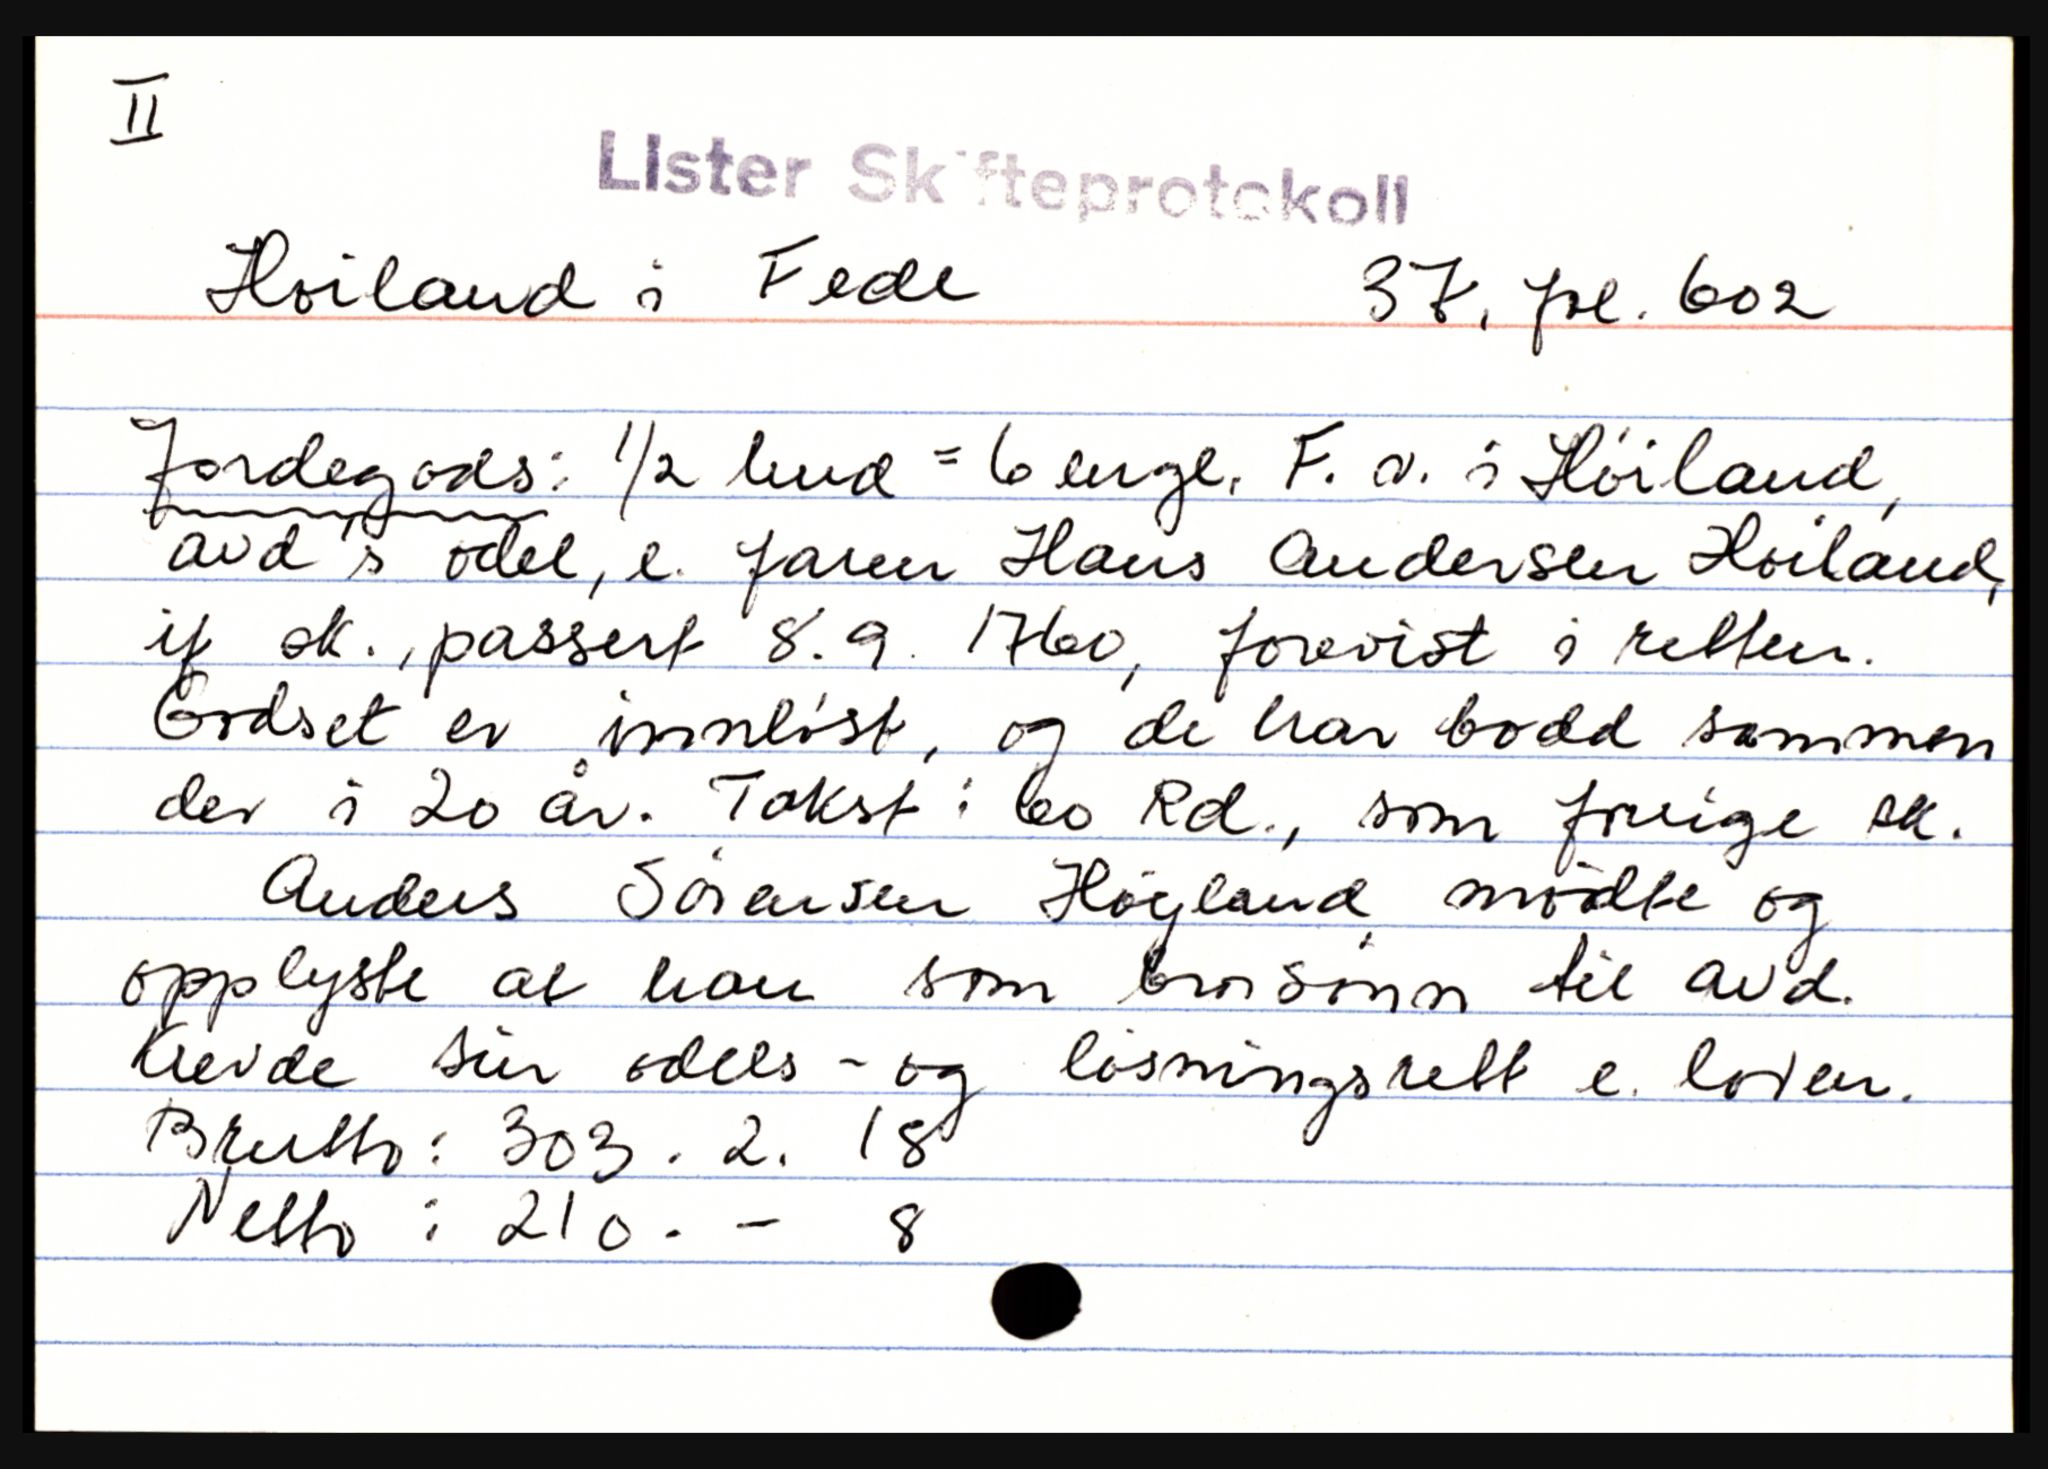 II
Lister Skifteprotokoll
Høiland i Fede 37, fol. 602
Jordegods: 1/2 hud = 6 engl. F. v. i Høiland,
avd's odel, e. faren Hans Andersen Høiland,
if sk., passert 8.9. 1760, forevist i retten.
Godset er innløst, og de har bodd sammen
der i 20 år. Takst: 60 Rd., som forrige sk.
Anders Sørensen Høyland mødte og
opplyste at han som brorsønn til avd.
krevde sin odels- og løsningsrett e. loven.
Brutto: 303. 2. 18
Netto: 210. - 8